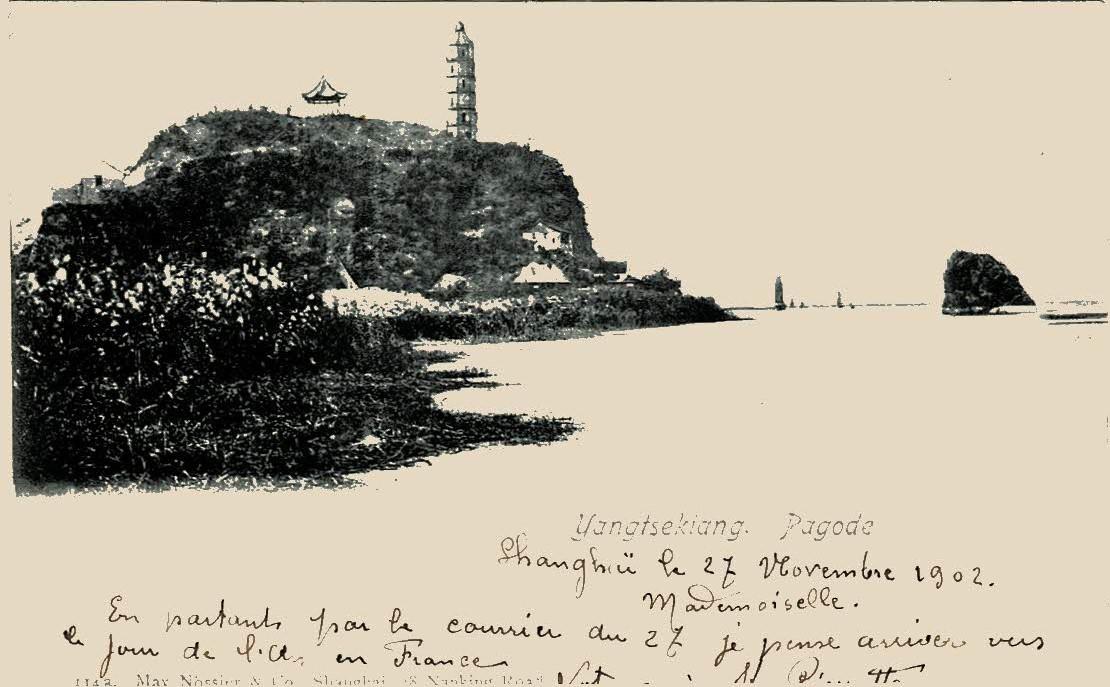 Yangtsekiang. Pagode
Shanghaï le 27 Novembre 1902.
Mademoiselle.
En partants par le courrier du 27 je pense arriver vers
le jour de l'an en France
1142. Max Nössler & Co. Shanghai, 38 Nanking Road